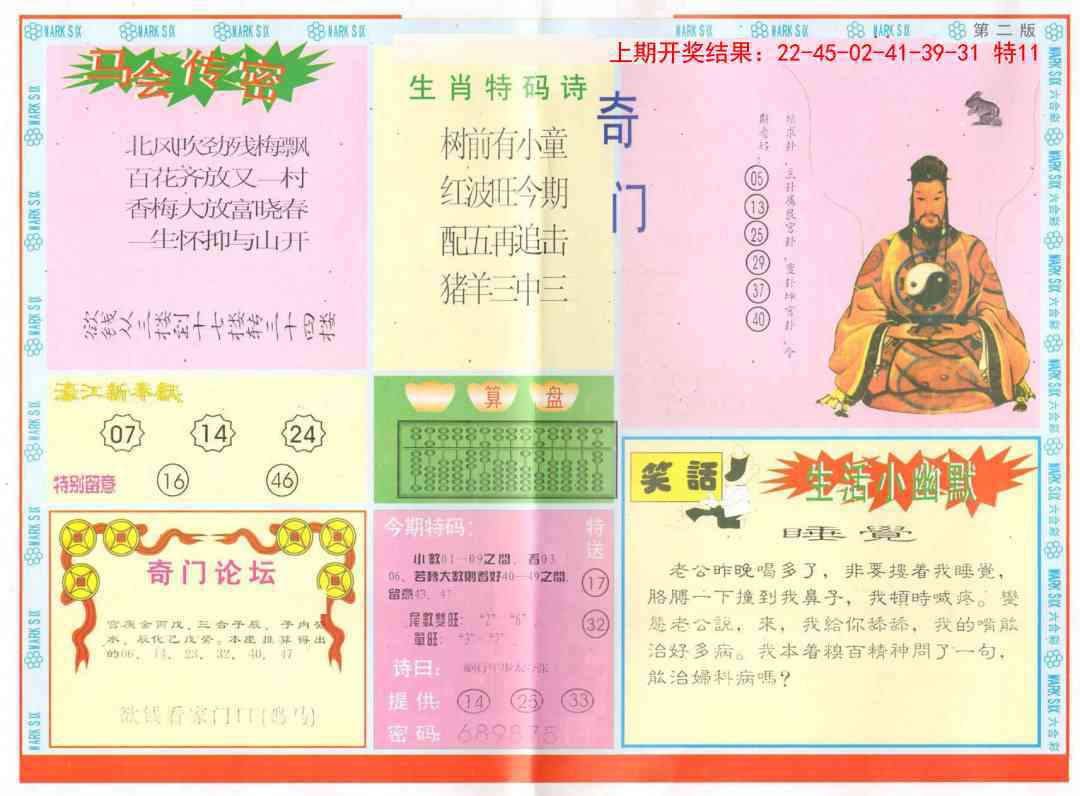 MARK SIX MARK SIX MARK SIX MARK SIX MARK SIX MARK SIX MARK SIX
第二版
上期开奖结果：22-45-02-41-39-31 特11
马会传密
北风吹劲残梅飘
百花齐放又一村
香梅大放富晓春
一生怀抑与山开
欲钱从三楼到十七楼转三十四楼
生肖特码诗
树前有小童
红波旺今期
配五再追击
猪羊三中三
奇门
结求卦，主卦属艮宫卦，变卦坤宫卦，今
期老好：
05
13
25
29
37
40
濠江新春献
07 14 24
特别留意 16 46
算盘
奇门论坛
水、辰化乙戊癸。本座推算得出
的06、14、23、32、40、47
欲钱看家门口(鸡马)
今期特码：
小数01—09之间，看03
06、若转大数则看好40—49之间，
留意43、47
尾数双旺：“2” “6”
单旺：“3”
诗曰：
提供：14 25 33
密码：689875
特送
17
32
笑話
生活小幽默
睡覺
老公昨晚喝多了，非要摟着我睡覺，
胳膊一下撞到我鼻子，我頓時喊疼。變
態老公說，來，我給你舔舔，我的嘴能
治好多病。我本着糗百精神問了一句，
能治婦科病嗎？
MARK SIX 六合彩